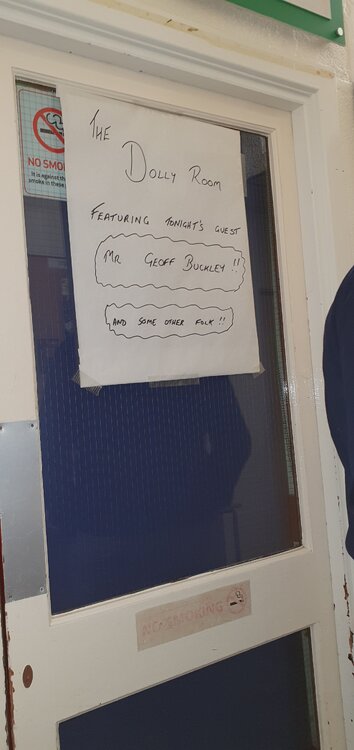 THE
DOLLY ROOM
FEATURING TONIGHT'S GUEST
MR GEOFF BUCKLEY !!
AND SOME OTHER FOLK !!
NO SMO
It is against th
smoke in these
NO SMOKING